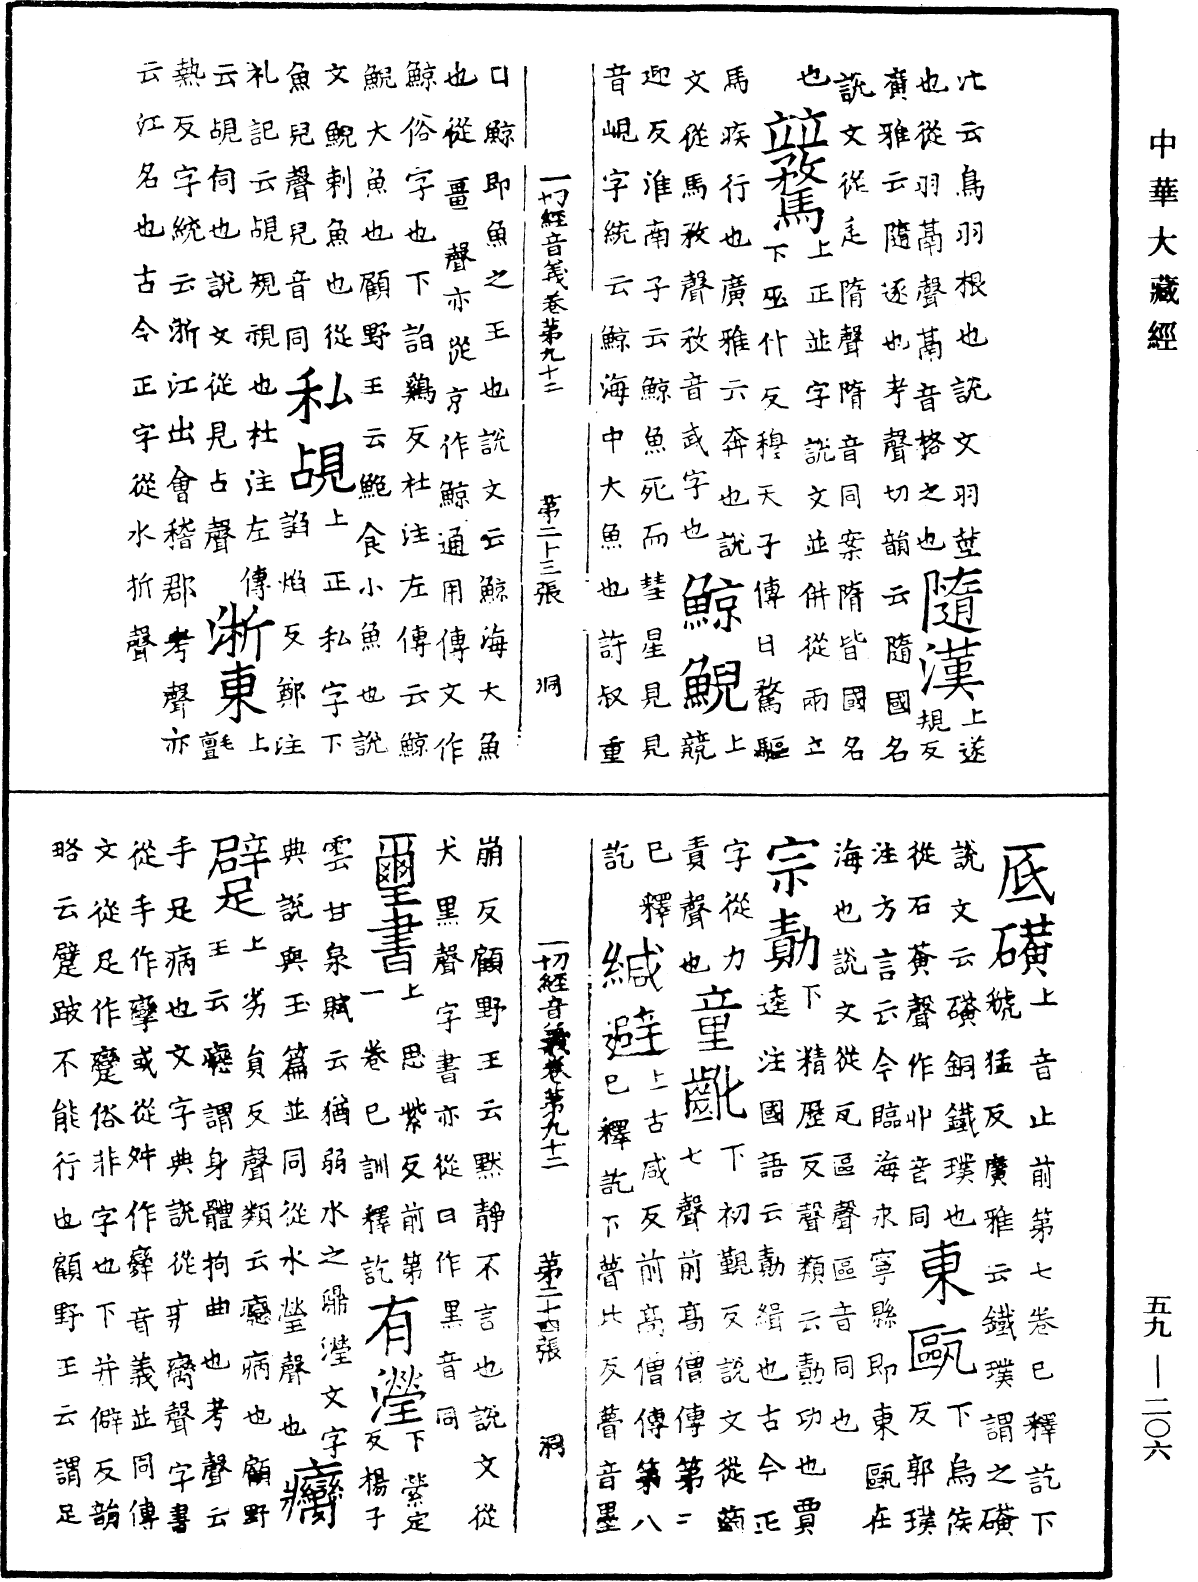 中華大藏經
汴云鳥羽根也說文羽莖
也從羽鬲聲鬲音格之也 隨漢 上遂規反
廣雅云隨逐也考聲切韻云隨國名
說文從辵隋聲隋音同案隋皆國名
也 竝騖 上正並字說文並併從兩立
下巫付反穆天子傳曰騖驅
馬疾行也廣雅云奔也說
文從馬敄聲敄音武字也 鯨鯢 上競
迎反淮南子云鯨魚死而彗星見見
音峴字統云鯨海中大魚也許叔重
一切經音義卷第九十二 第二十三張 洞
曰鯨即魚之王也說文云鯨海大魚
也從畺聲亦從京作鯨通用傳文作
鯨俗字也下詣鷄反杜注左傳云鯨
鯢大魚也顧野王云鮑食小魚也說
文鯢剌魚也從
魚兒聲兒音同 私覘 上正私字下
諂焰反鄭注
礼記云覘窺視也杜注左傳
云覘伺也說文從見占聲 浙東 上
氊
熱反字統云浙江出會稽郡考聲亦
云江名也古今正字從水折聲
底礦 上音止前第七卷已釋訖下
虢猛反廣雅云鐵璞謂之礦
說文云礦銅鐵璞也
從石黃聲作丱音同 東甌 下烏侯
反郭璞
注方言云今臨海永寧縣即東甌在
海也說文從瓦區聲區音同也
宗勣 下精歷反聲類云勣功也賈
逵注國語云勣緝也古今正
字從力
責聲也 童齔 下初覲反說文從齒
七聲前高僧傳第二
已釋
訖 緘避 上古咸反前高僧傳第八
已釋訖下瞢比反瞢音墨
一切經音義卷第九十二 第二十四張 洞
崩反顧野王云默靜不言也說文從
犬黑聲字書亦從口作嘿音同
璽書 上思紫反前第
一卷已訓釋訖 有瀅 下縈定
反楊子
雲甘泉賦云猶弱水之濎瀅文字
典說與玉篇並同從水瑩聲也 癵
躃足 上劣員反聲類云癵病也顧野
王云癵謂身體拘曲也考聲云
手足病也文字典說從疒臠聲字書
從手作攣或從舛作舝音義並同傳
文從足作躠俗非字也下并僻反韻
略云躄跛不能行也顧野王云謂足
五九—二〇六